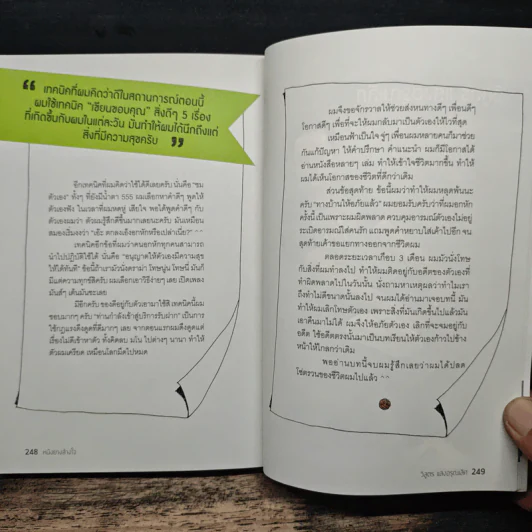 “ เทคนิคที่ผมคิดว่าดีในสถานการณ์ตอนนี้
ผมใช้เทคนิค “เขียนขอบคุณ” สิ่งดีๆ 5 เรื่อง
ที่เกิดขึ้นกับผมในแต่ละวัน มันทำให้ผมได้นึกถึงแต่
สิ่งที่มีความสุขครับ ”
อีกเทคนิคที่ผมคิดว่าใช้ได้ดีเลยครับ นั่นคือ “ชม
ตัวเอง” ทั้งๆ ที่ยังมีน้ำตา 555 ผมเลือกหาคำดีๆ พูดให้
ตัวเองฟัง ในเวลาที่ผมหดหู่ เสียใจ พอได้พูดคำดีๆ กับ
ตัวเองผมว่า ตัวผมรู้สึกดีขึ้นมากเลยนะครับ มันเหมือน
สมองเริ่มงงว่า “เอ๊ะ ตกลงเอ็งอกหักหรือเปล่าเนี่ย?”
เทคนิคอีกข้อที่ผมว่าคนอกหักทุกคนสามารถ
นำไปปฏิบัติใช้ได้ นั่นคือ “อนุญาตให้ตัวเองมีความสุข
ให้ได้ทันที” ข้อนี้ถ้าเรามัวนั่งดราม่า โทษนู่น โทษนี่ มันก็
มีแต่ความทุกข์สิครับ ผมเลือกเอาวิธีง่ายๆ เลย เปิดเพลง
มันส์ๆ เต้นมันซะเลย
มีอีกครับของดีอยู่กับตัวเอามาใช้สิ เทคนิคนี้ผม
ชอบมากๆ ครับ “ท่านกำลังเข้าสู่บริการรับฝาก” เป็นการ
ใช้กฎแรงดึงดูดที่ดีมากๆ เลย จากตอนแรกผมดึงดูดแต่
เรื่องไม่ดีเข้าหาตัว ทั้งคิดลบ มโน ไปต่างๆ นานา ทำให้
ตัวผมเครียด เหมือนโลกมืดไปหมด
248
ผมจึงขอจักรวาลให้ช่วยส่งหนทางดีๆ เพื่อนดีๆ
โอกาสดีๆ เพื่อที่จะให้ผมกลับมาเป็นตัวเองให้ไวที่สุด
เหมือนฟ้าเป็นใจ จู่ๆ เพื่อนผมหลายคนก็มาช่วย
กันแก้ปัญหา ให้คำปรึกษา คำแนะนำ ผมก็มีโอกาสได้
อ่านหนังสือหลายๆ เล่ม ทำให้เข้าใจชีวิตมากขึ้น ทำให้
ผมได้เห็นโอกาสของชีวิตที่ดีกว่าเดิม
ส่วนข้อสุดท้าย ข้อนี้ผมว่าทำให้ผมหลุดพ้นนะ
ครับ “ทางบ้านให้อภัยแล้ว” ผมยอมรับครับว่าที่ผมอกหัก
ครั้งนี้ เป็นเพราะผมผิดพลาด ควบคุมอารมณ์ตัวเองไม่อยู่
ระเบิดอารมณ์ใส่คนรัก แถมพูดคำหยาบใส่เค้าไปอีก จน
สุดท้ายเค้าขอแยกทางออกจากชีวิตผม
ตลอดระยะเวลาเกือบ 3 เดือน ผมมัวนั่งโทษ
กับสิ่งที่ผมทำลงไป ทำให้ผมติดอยู่กับอดีตของตัวเองที่
ทำผิดพลาดไปในวันนั้น นั่งถามหาเหตุผลว่าทำไมเรา
ถึงทำไม่ดีขนาดนั้นลงไป จนผมได้อ่านมาเจอบทนี้ มัน
ทำให้ผมเลิกโทษตัวเอง เพราะสิ่งที่มันเกิดขึ้นไปแล้วมัน
เอาคืนมาไม่ได้ ผมจึงให้อภัยตัวเอง เลิกที่จะจมอยู่กับ
อดีต ใช้อดีตตรงนั้นมาเป็นบทเรียนให้ตัวเองก้าวไปข้าง
หน้าให้ไกลกว่าเดิม
พออ่านบทนี้จบผมรู้สึกเลยว่าผมได้ปลด
โซ่ตรวนของชีวิตผมไปแล้ว ^^
249